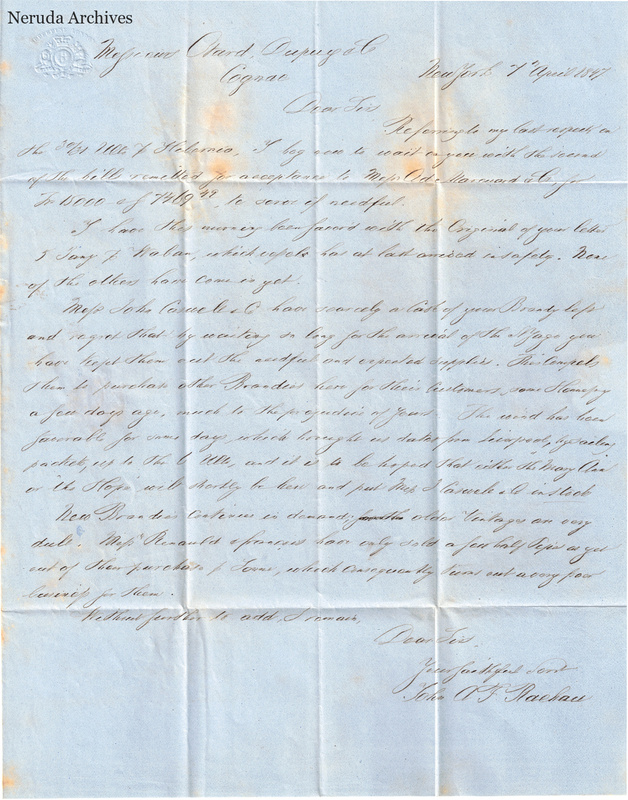 Neruda Archives
Messieurs Otard, Dupuy & C
Cognac
New York 7 April 1847
Dear Sirs
Referring to my last respects on
the 30/31 Ulto p Hibernia, I beg now to wait on you with the second
of the bills remitted for acceptance to Mess & C for
Fr 15000 of 7469 to of needful.
I have this morning been favord with the Original of your letter
5 Jany p Waban, which vessel has at last arrived in safety. None
of the others have come in yet.
Mess John & C have scarcely a Cask of your Brandy left
and regret that by waiting so long for the arrival of the you
have kept them out the needful and expected supplies. This compels
them to purchase other Brandies here for their Customers, some Hennessy
a few days ago, much to the prejudice of yours. The wind has been
favorable for some days, which brought us dates from Liverpool, by sailing
packets, up to the 6 Ulto, and it is to be hoped that either the Mary Ann
or the Hope will shortly be here and put Mess J & C in stock
New Brandies continue in demand; older Vintages are very
dull. Mess Renauld & françois have only sold a few half pipes as yet
out of their purchase p , which consequently turns out a very poor
business for them.
Without further to add, I remain,
Dear Sirs.
Your faithful Servt
John